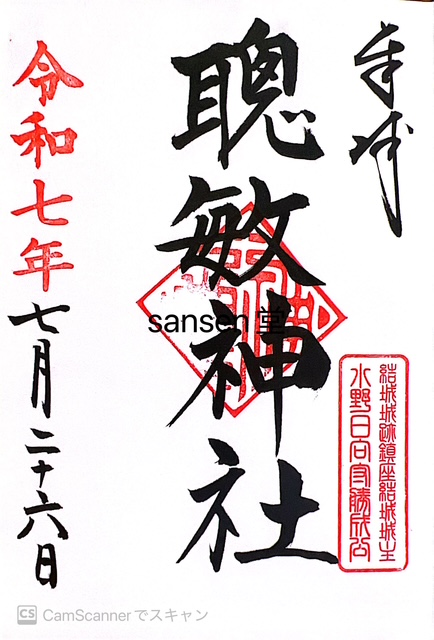 奉拝
結城城跡鎮座結城城主
水野日向守勝成公
聰敏神社
sansen 堂
令和七年
七月二十六日
CS CamScannerでスキャン